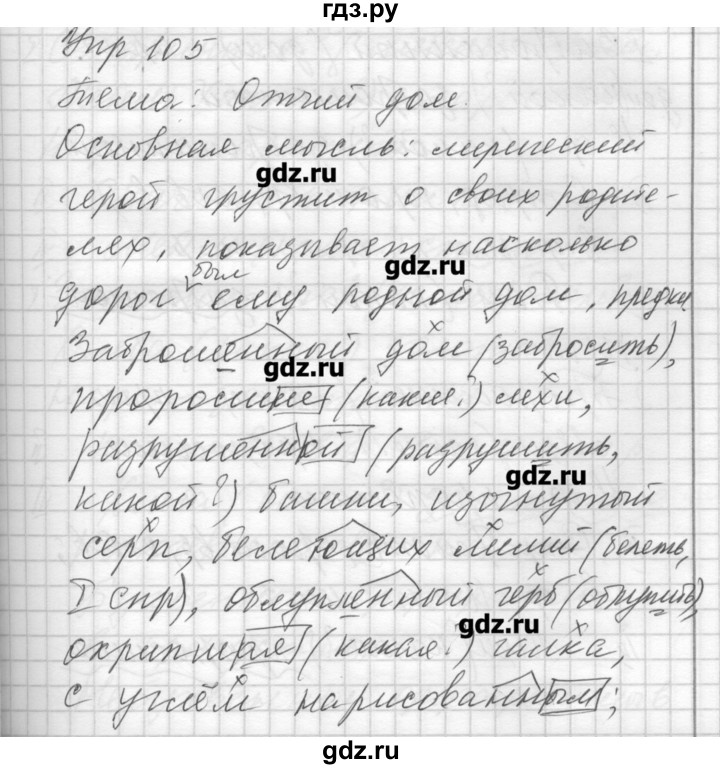 гдз.ру
Упр 105
Тема: Отчий дом.
Основная мысль: лирический
gdz.ru
герой грустит о своих родите-
лях, показывает насколько
был
gdz.ru
дорог ему родной дом, предки.
Заброшенный дом (забросить),
gdz.ru
проросшие (какие?) мхи,
разрушенной (разрушить,
gdz.ru
какой?) башни, изогнутый
серп, белеющих лилий (белеть,
I спр), облупленный герб (облупить),
gdz.ru
охрипшая (какая?) галка,
с углём нарисованным;
gdz.ru